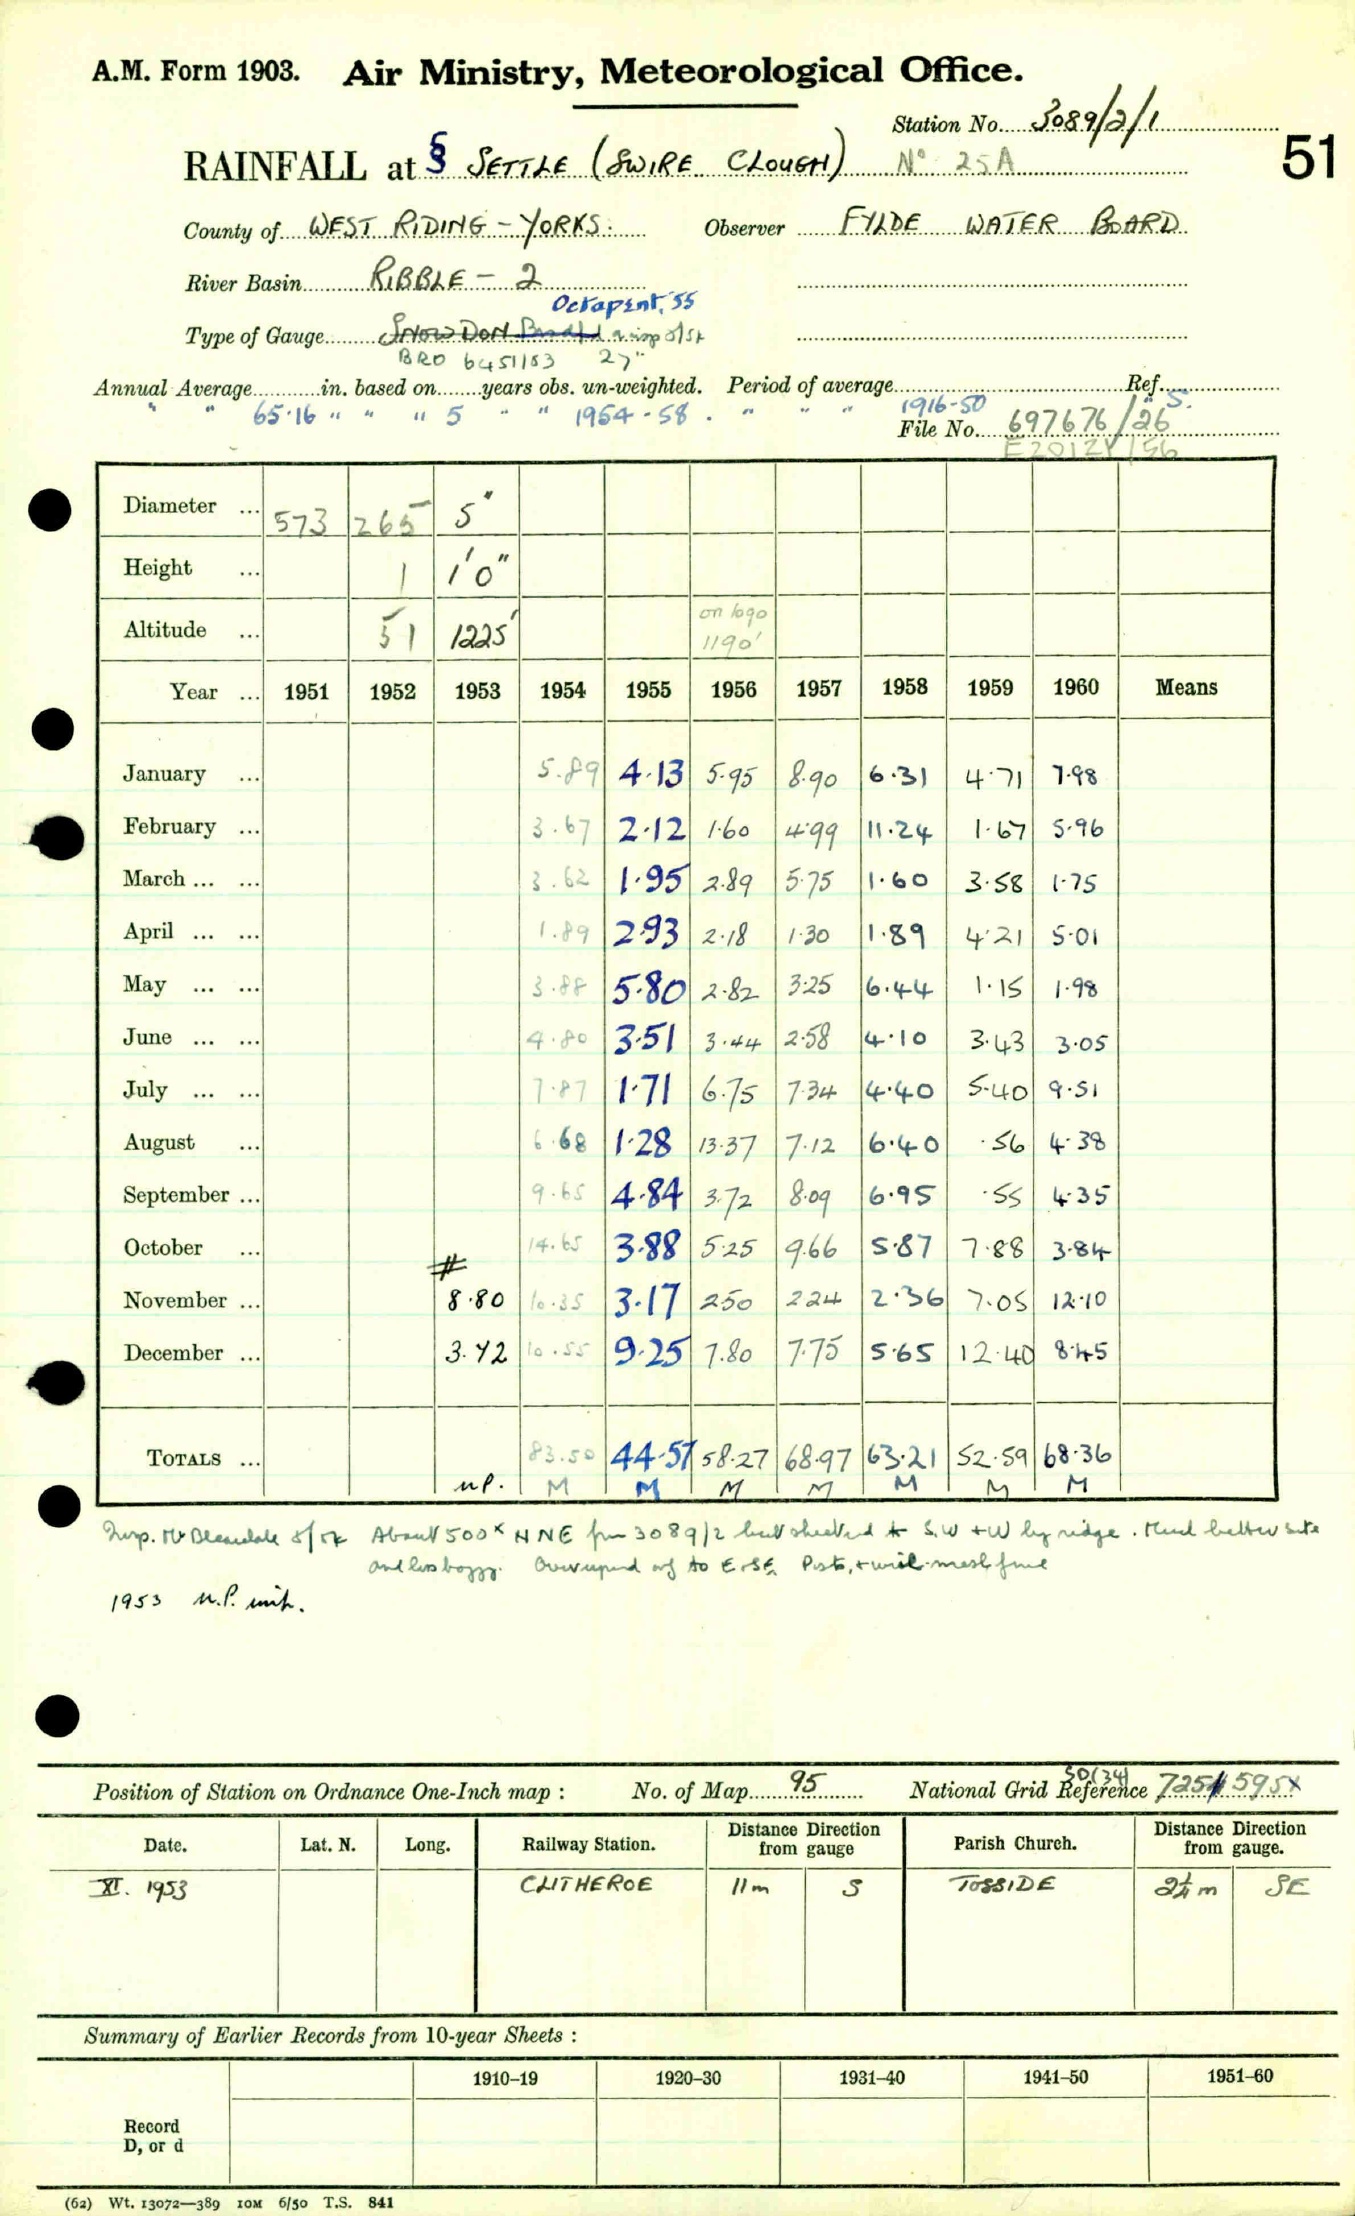 A.M. Form 1903. Air Ministry, Meteorological Office.
Station No. 3089/2/1
51
RAINFALL at § SETTLE (SWIRE CLOUGH) No 25A
County of WEST RIDING – YORKS. Observer FYLDE WATER BOARD
River Basin RIBBLE – 2
Octapent, '55
Type of Gauge SNOWDON
BRO 6451/53 27"
Annual Average in. based on years obs. un-weighted. Period of average Ref.
" " 65.16 " " " 5 " " 1954-58. " " " 1916-50 " 5.
File No. 697676/26
E2012Y/56
Diameter ... 573 265 5"
Height ... 1 1'0"
Altitude ... 51 1225' on 1090 1190'
Year ... 1951 1952 1953 1954 1955 1956 1957 1958 1959 1960 Means
January ... 5.89 4.13 5.95 8.90 6.31 4.71 7.98
February ... 3.67 2.12 1.60 4.99 11.24 1.67 5.96
March ... ... 3.62 1.95 2.89 5.75 1.60 3.58 1.75
April ... ... 1.89 2.93 2.18 1.30 1.89 4.21 5.01
May ... ... 3.88 5.80 2.82 3.25 6.44 1.15 1.98
June ... ... 4.80 3.51 3.44 2.58 4.10 3.43 3.05
July ... ... 7.87 1.71 6.75 7.34 4.40 5.40 9.51
August ... 6.68 1.28 13.37 7.12 6.40 .56 4.38
September ... 9.65 4.84 3.72 8.09 6.95 .55 4.35
October ... 14.65 3.88 5.25 9.66 5.87 7.88 3.84
#
November ... 8.80 10.35 3.17 2.50 2.24 2.36 7.05 12.10
December ... 3.42 10.55 9.25 7.80 7.75 5.65 12.40 8.45
TOTALS ... 83.50 44.57 58.27 68.97 63.21 52.59 68.36
n.P. M M M M M M M
Insp. Mr Bleasdale 5/54 About 500x NNE from 3089/2 but sheltered to S.W + W by ridge. Much better site
and less boggy. to E + SE. Posts, + wire-mesh fence
1953 n.P. init.
Position of Station on Ordnance One-Inch map : No. of Map 95 National Grid Reference SD(34) 725 595
Date. Lat. N. Long. Railway Station. Distance Direction from gauge Parish Church. Distance Direction from gauge.
XI. 1953 CLITHEROE 11m S TOSSIDE 2¼ m SE
Summary of Earlier Records from 10-year Sheets :
1910–19 1920–30 1931–40 1941–50 1951–60
Record
D, or d
(62) Wt. 13072—389 10M 6/50 T.S. 841